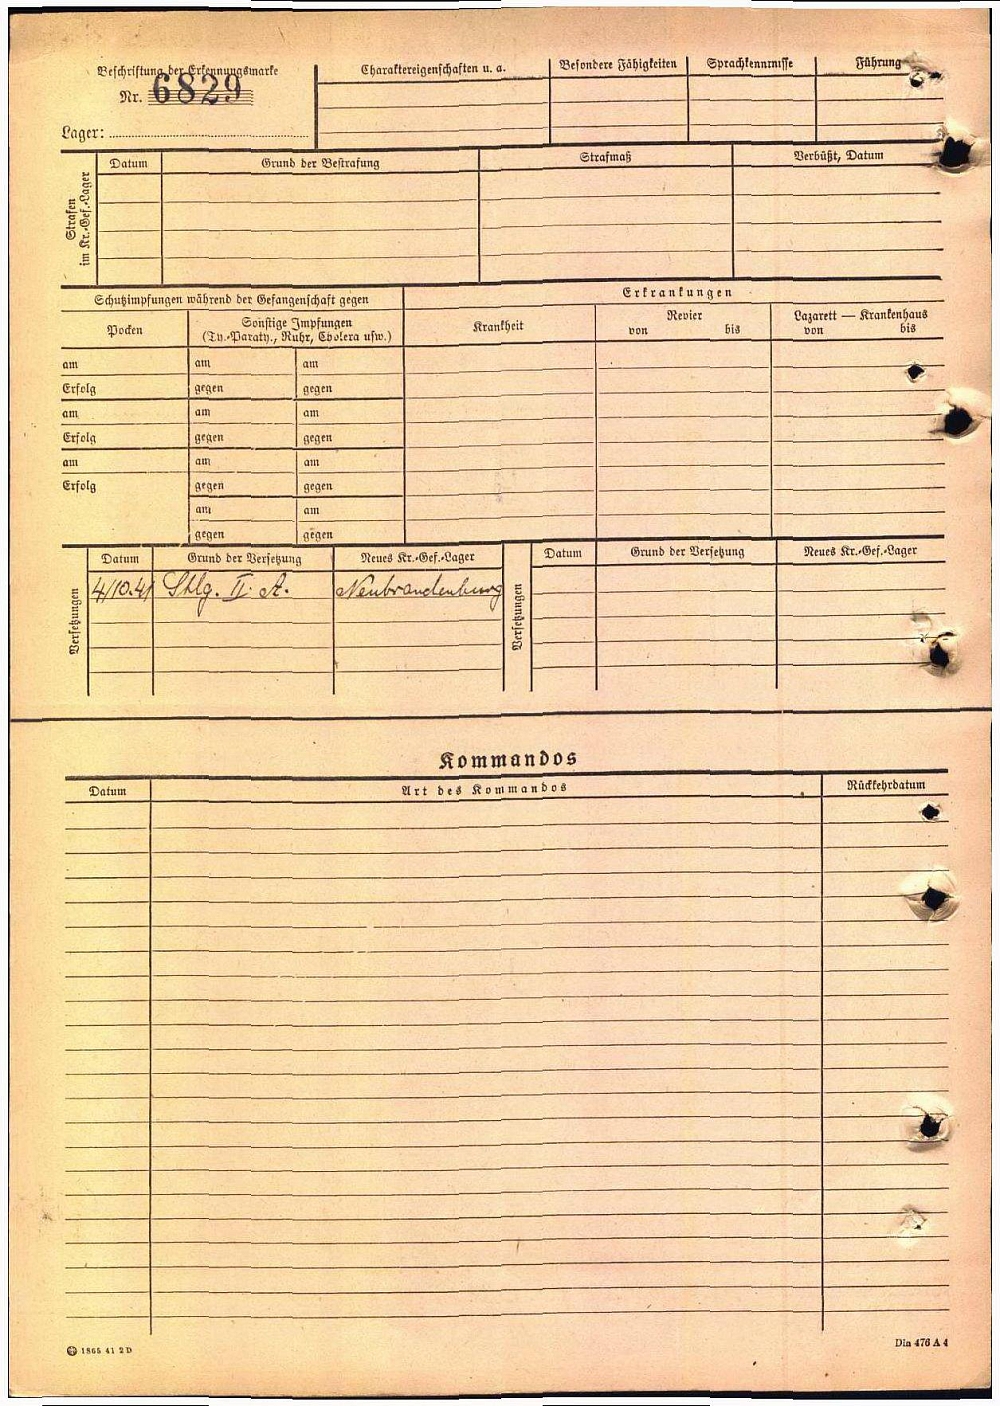 Beschriftung der Erkennungsmarke
Nr. 6829
Lager:
Charaktereigenschaften u. a.
Besondere Fähigkeiten
Sprachkenntnisse
Führung
Strafen
im Kr.-Gef.-Lager
Datum
Grund der Bestrafung
Strafmaß
Verbüßt, Datum
Schutzimpfungen während der Gefangenschaft gegen
Erkrankungen
Pocken
Sonstige Impfungen
(Ty.-Paraty., Ruhr, Cholera usw.)
Krankheit
Revier
von bis
Lazarett — Krankenhaus
von bis
am am am
Erfolg gegen gegen
am am am
Erfolg gegen gegen
am am am
Erfolg gegen gegen
am am
gegen gegen
Versetzungen
Datum Grund der Versetzung Neues Kr.-Gef.-Lager
4/10.41 Stlg. II. A. Neubrandenburg
Versetzungen
Datum Grund der Versetzung Neues Kr.-Gef.-Lager
Kommandos
Datum Art des Kommandos Rückkehrdatum
1865 41 2 D
Din 476 A 4